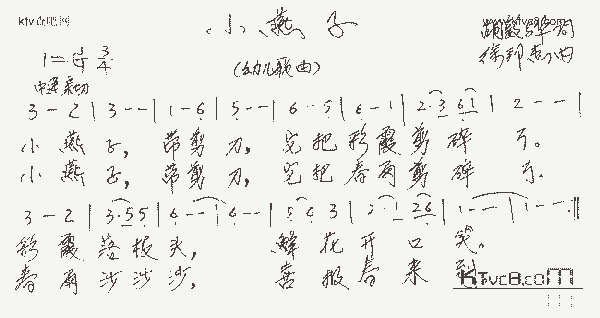 小燕子
(幼儿歌曲)
1=G 3/4
中速 亲切
3 - 2 | 3 - - | 1 - 6 | 5 - - | 6 · 5 | 6 - 1 | 2·3 61 | 2 - - |
小燕子, 带剪刀, 它把彩霞剪碎了。
小燕子, 带剪刀, 它把春雨剪碎了.
3 - 2 | 3·55 | 6 - - | 6 - - | 5 6 3 | 2·1 26 | 1 - - | 1 - - ||
彩霞落枝头, 鲜花开口笑。
春雨沙沙沙, 喜报春来到.
KTvc8.com